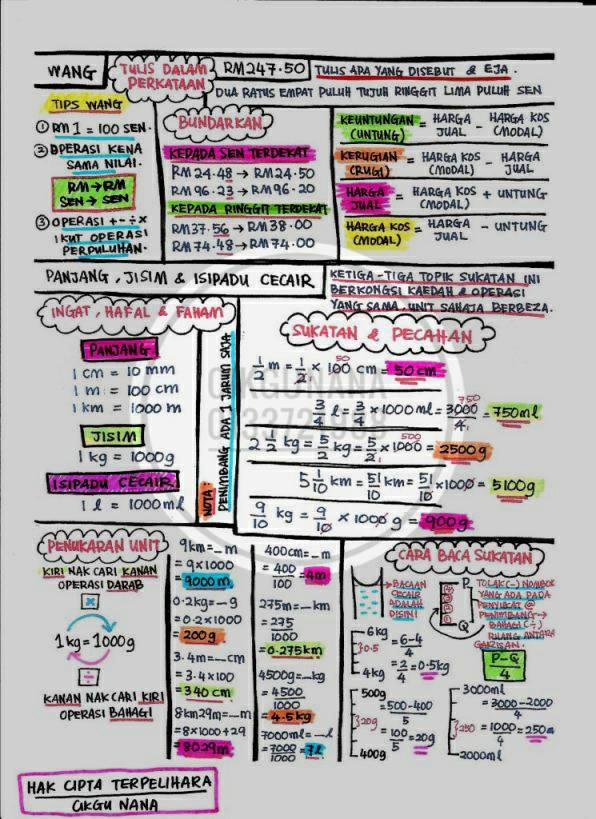 WANG
TULIS DALAM
PERKATAAN
RM247.50
TULIS APA YANG DISEBUT & EJA.
DUA RATUS EMPAT PULUH TUJUH RINGGIT LIMA PULUH SEN
TIPS WANG
① RM 1 = 100 SEN.
② OPERASI KENA
SAMA NILAI.
RM → RM
SEN → SEN
③ OPERASI + - ÷ ×
IKUT OPERASI
PERPULUHAN.
BUNDARKAN
KEPADA SEN TERDEKAT
RM24.48 → RM24.50
RM96.23 → RM96.20
KEPADA RINGGIT TERDEKAT
RM37.56 → RM38.00
RM74.48 → RM74.00
KEUNTUNGAN (UNTUNG) = HARGA JUAL - HARGA KOS (MODAL)
KERUGIAN (RUGI) = HARGA KOS (MODAL) - HARGA JUAL
HARGA JUAL = HARGA KOS (MODAL) + UNTUNG
HARGA KOS (MODAL) = HARGA JUAL - UNTUNG
PANJANG, JISIM & ISIPADU CECAIR
KETIGA-TIGA TOPIK SUKATAN INI
BERKONGSI KAEDAH & OPERASI
YANG SAMA. UNIT SAHAJA BERBEZA.
INGAT, HAFAL & FAHAM
PANJANG
1 cm = 10 mm
1 m = 100 cm
1 km = 1000 m
JISIM
1 kg = 1000g
ISIPADU CECAIR
1 l = 1000ml
NOTA:
PENIMBANG ADA 1 JARUM SAJA
SUKATAN & PECAHAN
1/2 m = 1/2 × 100 cm = 50 cm
50
3/4 l = 3/4 × 1000 ml = 3000/4 = 750ml
750
2 1/2 kg = 5/2 kg = 5/2 × 1000 = 2500g
500
5 1/10 km = 51/10 km = 51/10 × 1000 = 5100g
9/10 kg = 9/10 × 1000 g = 900g
CIKGUNANA
PENUKARAN UNIT
KIRI NAK CARI KANAN
OPERASI DARAB
×
1 kg = 1000g
÷
KANAN NAK CARI KIRI
OPERASI BAHAGI
9km = _ m
= 9×1000
= 9000m
0.2kg = _ g
= 0.2×1000
= 200g
3.4m = _ cm
= 3.4×100
= 340 cm
8km29m = _ m
= 8×1000+29
= 8029m
400cm = _ m
= 400/100 = 4m
275m = _ km
= 275/1000
= 0.275km
4500g = _ kg
= 4500/1000
= 4.5kg
7000ml = _ l
= 7000/1000 = 7l
CARA BACA SUKATAN
BACAAN
CECAIR
ADALAH
DISINI
P
Q
TOLAK(-) NOMBOR
YANG ADA PADA
PENYUKAT @
PENIMBANG →
BAHAGI (÷)
BILANG ANTARA
GARISAN.
P-Q/4
6kg
0.5
4kg
= 6-4/4
= 2/4 = 0.5kg
500g
20g
400g
= 500-400/5
= 100/5 = 20g
3000ml
250
2000ml
= 3000-2000/4
= 1000/4 = 250m
HAK CIPTA TERPELIHARA
CIKGU NANA